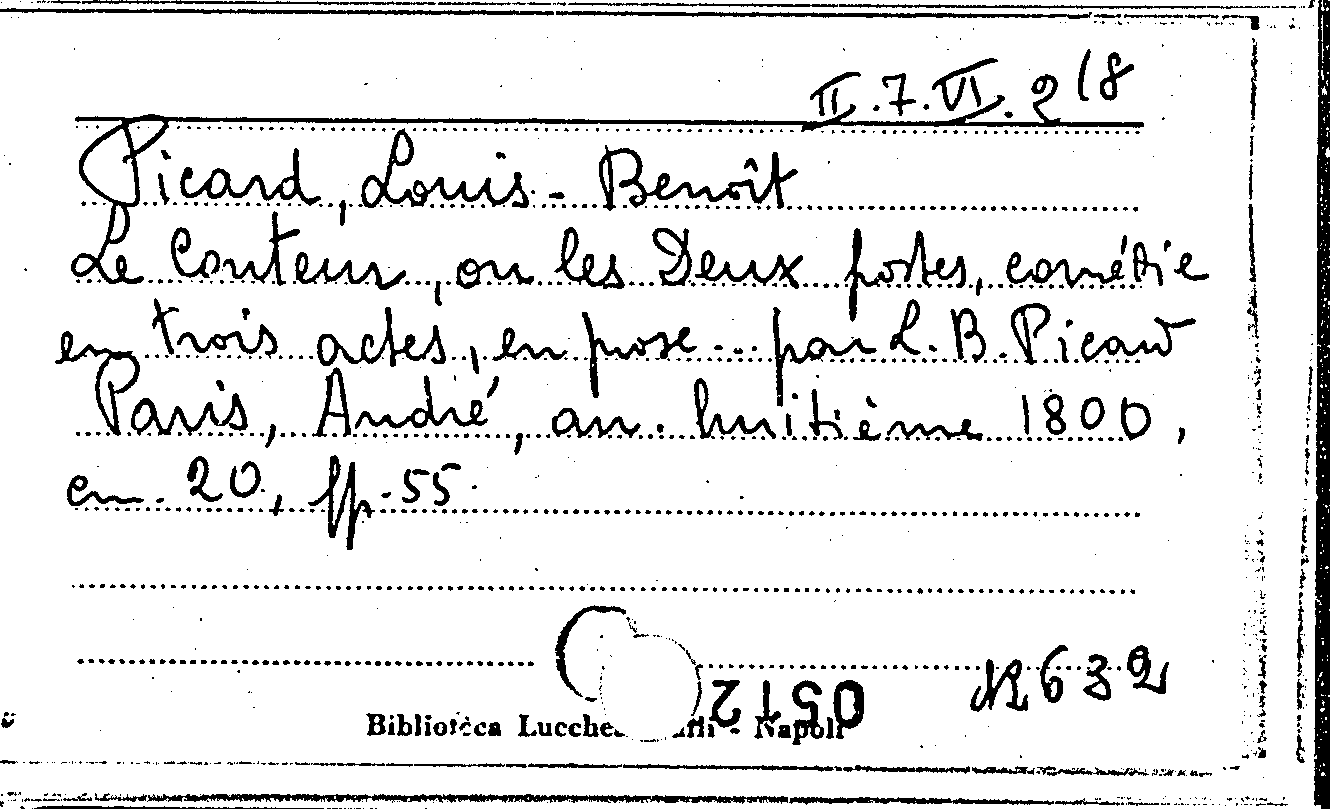 II.7.VI.2 18
Picard, Louis-Benoît
Le Conteur, ou les Deux postes, comédie
en trois actes, en prose... par L.B. Picard
Paris, André, an. huitième 1800,
cm. 20, pp. 55.
632
0512
Biblioteca - Napoli